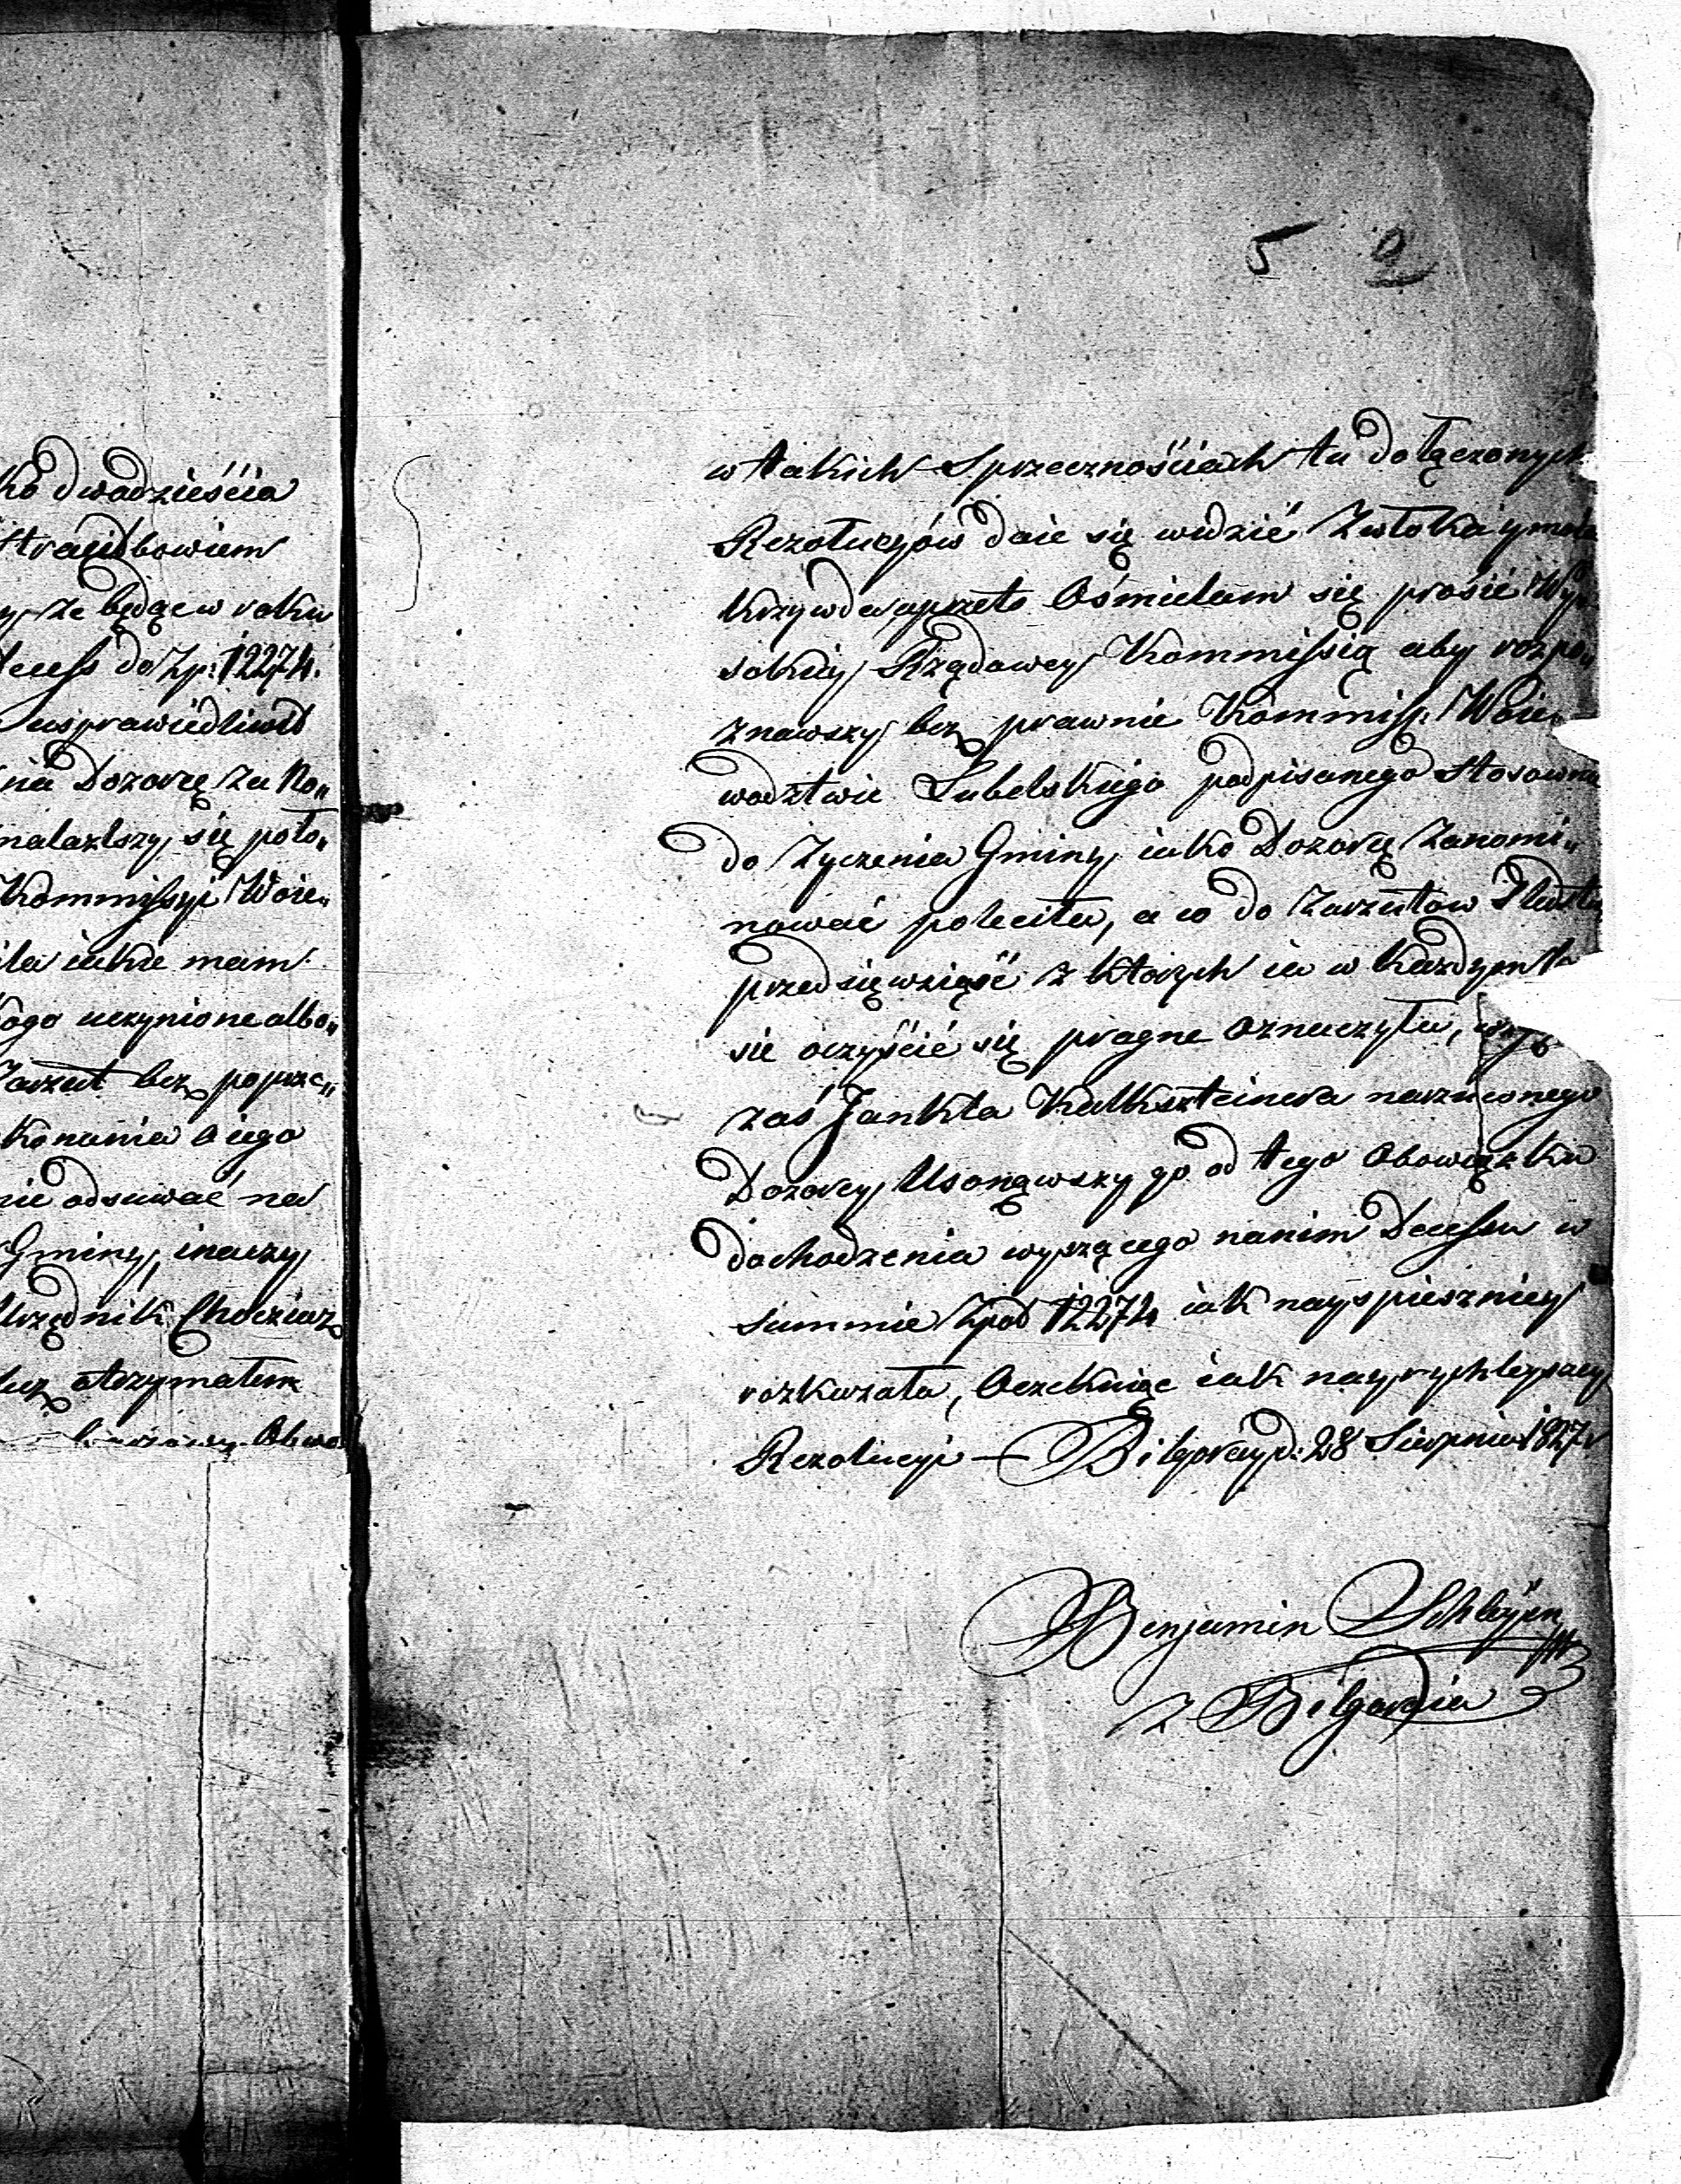 5 2
ko dwadzieścia
stracił bowiem
że będąc w roku
do Zp: 12274.
usprawiedliwił
na Dozorcę za No„
nalazłszy się poło„
Kommissyi Woie„
iła iakie mam
kogo uczynione albo„
Zarzut bez poprze„
konania o iego
nie odsuwać na
Gminy, inaczy
Urzędnik Chociarz
otrzymałem
Obwo
w takich Sprzecznościach tu dołączonych
Rezolucyów daie się widzić Zwłoka y moia
krzywda aprzeto Ośmielam się prosić Wy„
sokiey Rządowey Kommissią aby rozpo„
znawszy bez prawnie Kommiss: Woie„
wodztwa Lubelskiego podpisanego stosownie
do Życzenia Gminy iako Dozorcę Zanomi„
nować poleciła, a co do Zarzutów
przedsięwziąść z których ia w każdym
sie oczyścić się pragne oznaczyła,
zaś Jankla Kalkszteinera narzuconego
Dozorcy Usonąwszy go od tego Obowiązku
dochodzenia wyszącego nanim Decessu w
summie Zpol 12274 iak nayspieszniey
rozkazała, Oczekuiąc iak nayrychleyszey
Rezolucyi — Bilgoray d: 28 Sierpnia 1827 r
Benjamin
z Bilgoraia